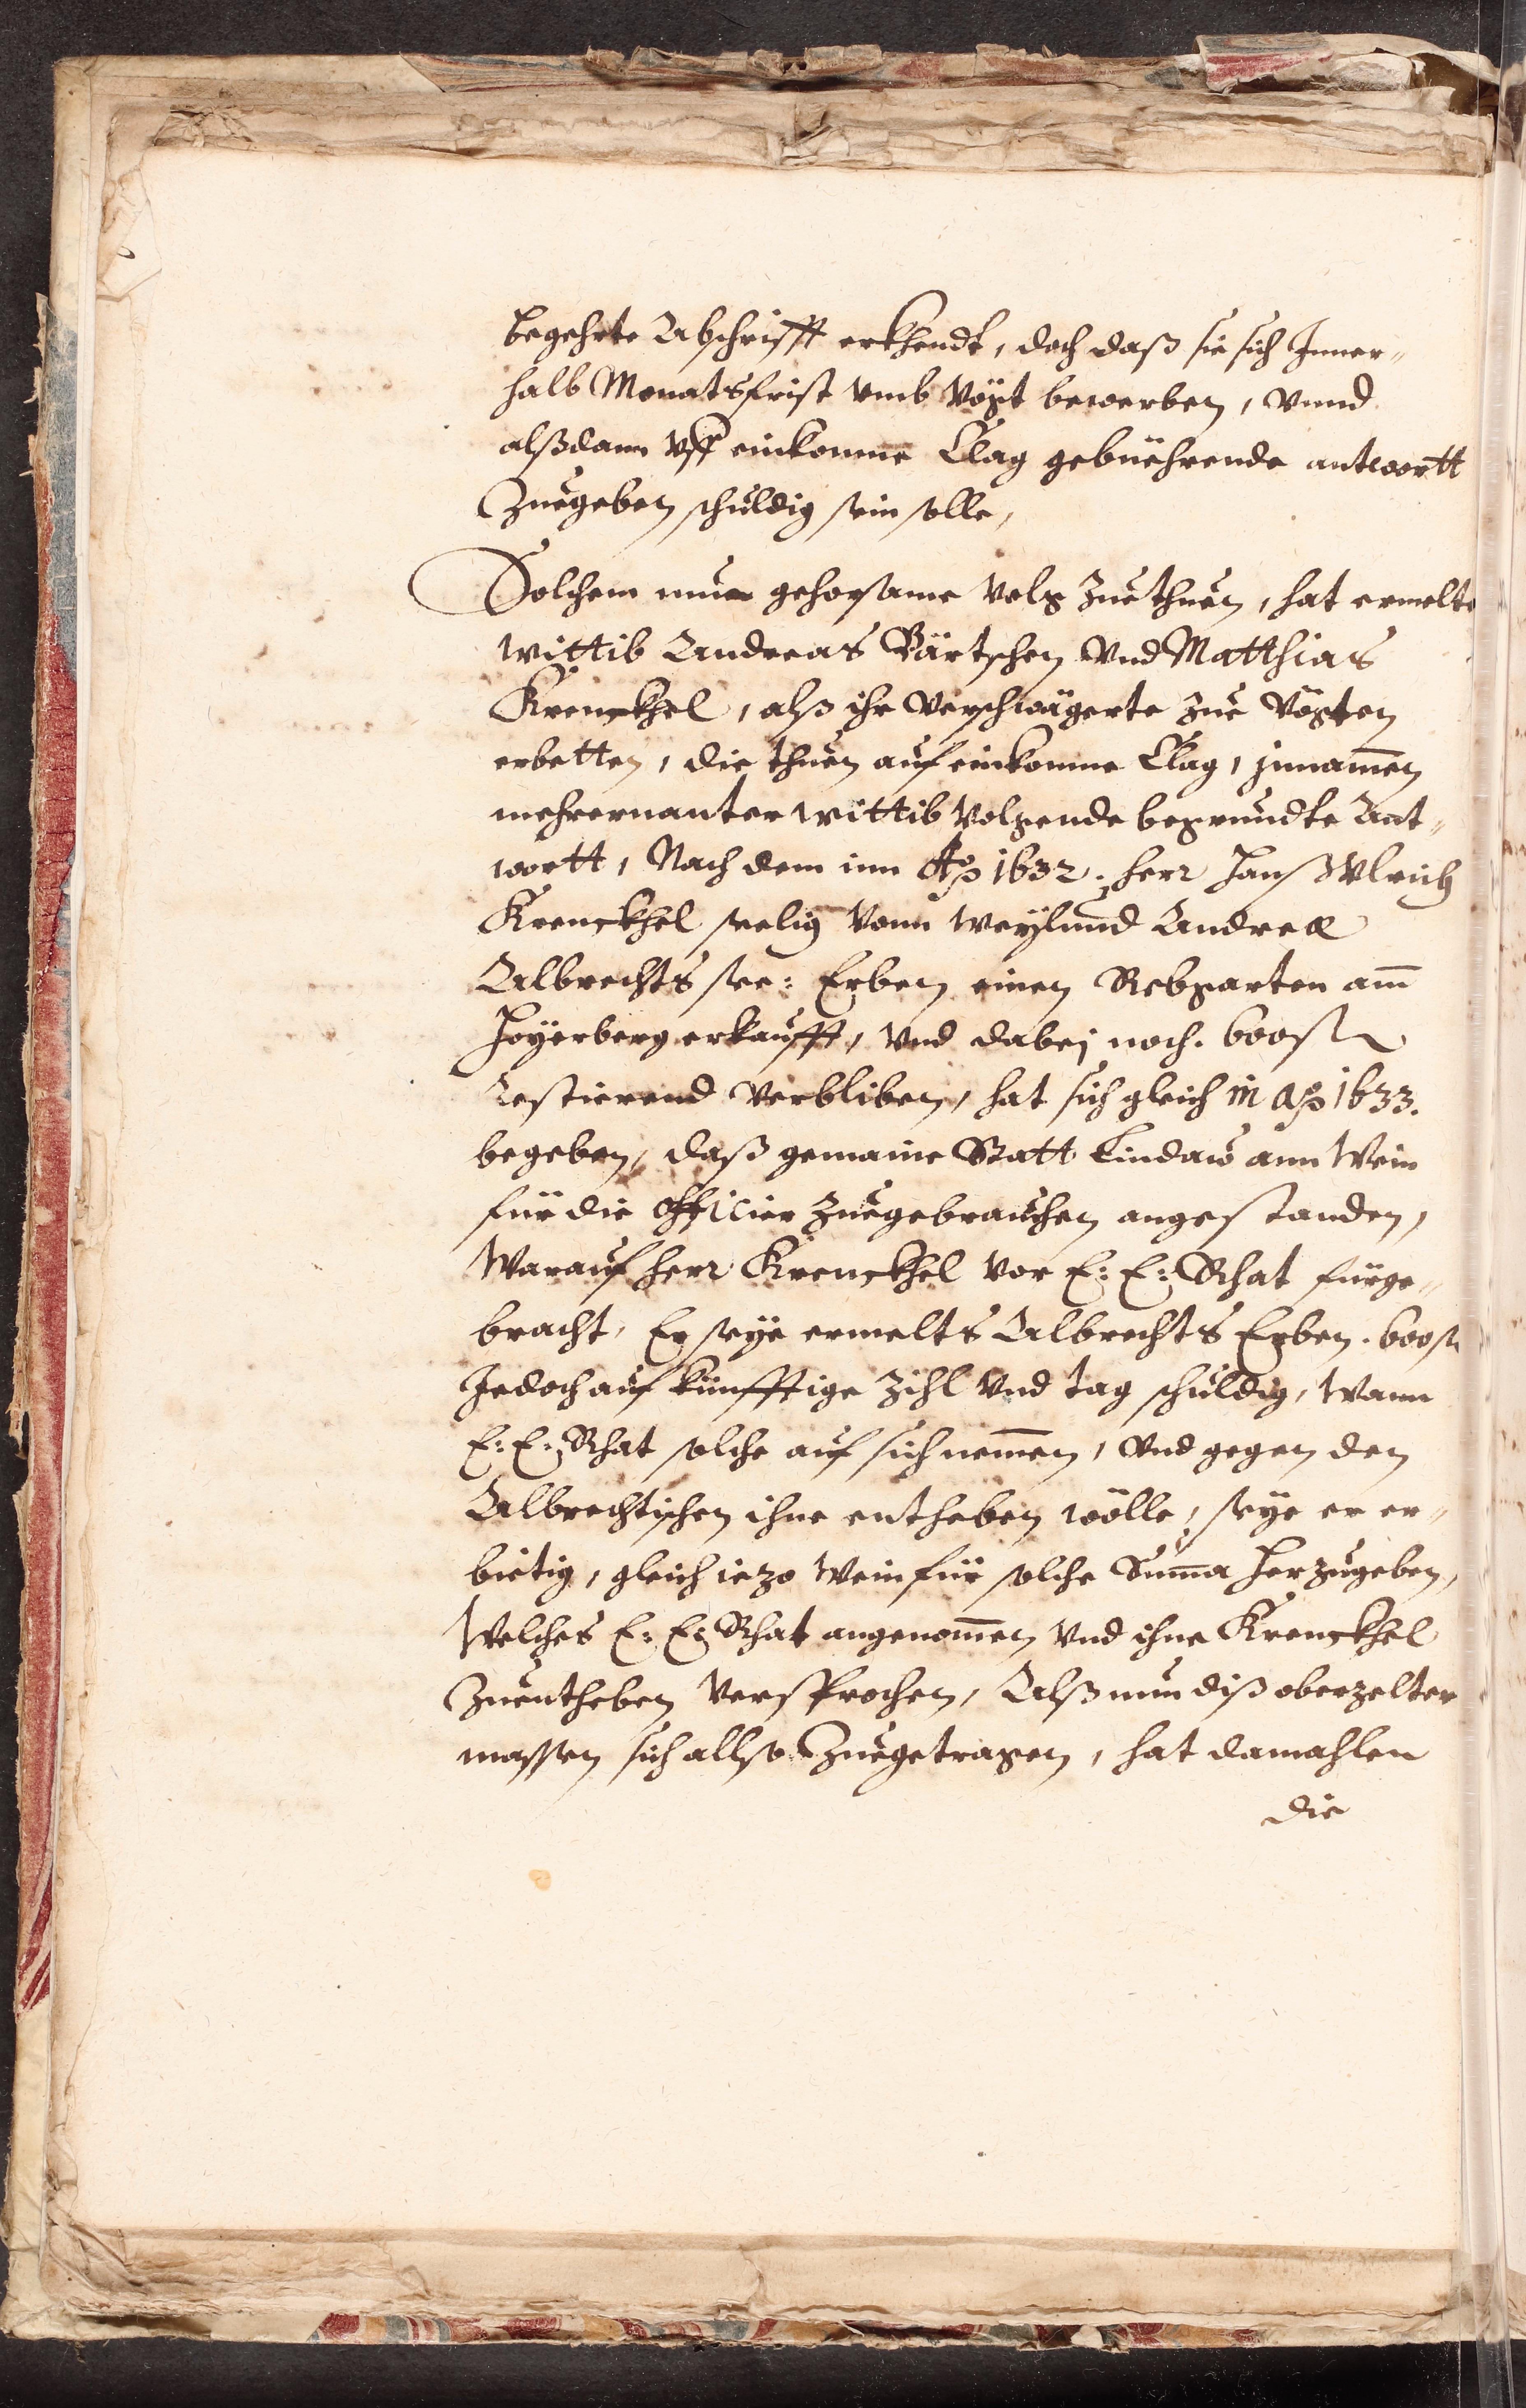 begehrte Abschrifft erkhendt, doch daß sie sich Inner-
halb Monatsfrist vmb Vögt bewerben, vnnd
alßdann vff einkomne Clag gebüehrende antwortt
Zuegeben schuldig sein solle,
Solchem nun gehorsame Volg zuethuen, hat ermelte
wittib Andreas Bärtschen vnd Matthias
Krenckhel, alß ihr verschwägerte zue Vögten
erbetten, die thuen auf einkomne Clag, jnnamen
mehrernanter wittib volgende begründte Ant-
wortt, Nach dem inn Ao 1632. herr Hanß Vlrich
Krenckhel seelig vonn weylund Andreæ
Albrechts see: Erben einen Rebgarten am
Hoyerberg erkaufft, vnd dabej noch. 600 fl
Restierend verbliben, hat sich gleich in Ao 1633.
begeben, daß gemaine Statt Lindaw ann Wein
für die Officier zuegebrauchen angestanden,
Warauf herr Krenckhel vor E: E: Rhat fürge-
bracht, Er seye ermelts Albrechts Erben. 600 fl
Jedoch auf künfftige Zihl vnd tag schuldig, Wann
E: E: Rhat solche auf sich nemen, vnd gegen den
Albrechtischen ihne entheben wölle, seye er er-
bietig, gleich iezo Wein für solche Suma herzugeben,
Welches E: E: Rhat angenomen vnd ihne Krenckhel
Zuentheben versprochen, Alß nun diß oberzelter
massen sich allso Zuegetragen, hat damahlen
die